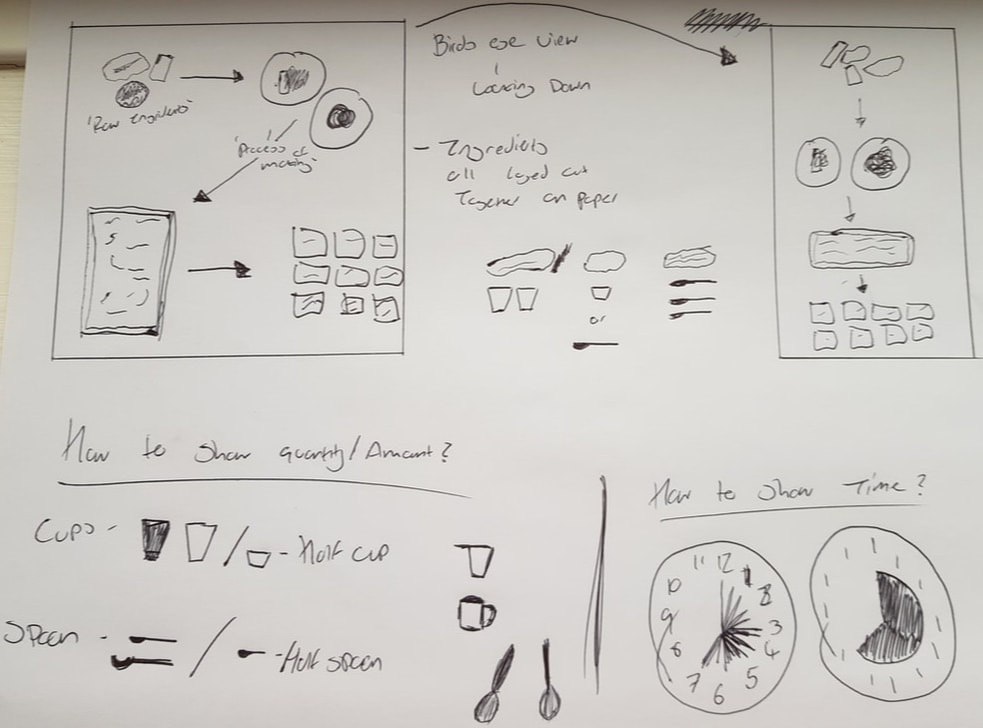 Birds eye view
Looking Down
'Raw Ingridients'
'Process of
making'
- Ingredients
all layed out
Together on paper
or
How to show quantity/Amount?
Cups -
/
- Half cup
Spoon -
/
- Half spoon
How to show Time?
11 12 1
10 2
9 3
8 4
7 6 5